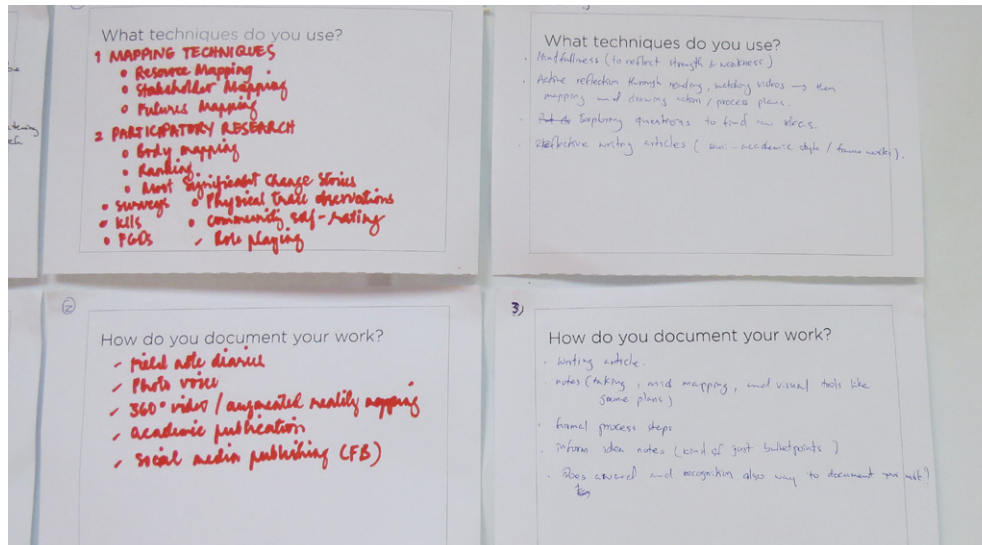 What techniques do you use?
1 MAPPING TECHNIQUES
• Resource Mapping.
• Stakeholder Mapping
• Futures Mapping
2 PARTICIPATORY RESEARCH
• Body mapping
• Ranking
• Most Significant Change Stories
• Surveys • Physical trace observations
• KIIs • Community self-rating
• FGDs - Role playing
What techniques do you use?
• Mindfullness (to reflect strength & weakness)
• Active reflection through reading, watching videos → then
mapping and drawing action / process plans.
• Exploring questions to find new ideas.
• Reflective writing articles (semi-academic style / frame works).
②
How do you document your work?
- Field note diaries
- Photo voice
- 360° video / augmented reality mapping
- academic publication
- Social media publishing (FB)
3)
How do you document your work?
• Writing article.
• notes (taking, mind mapping, and visual tools like
game plans)
• formal process steps
• inform idea notes (kind of just bulletpoints)
• Does award and recognition also way to document your work?